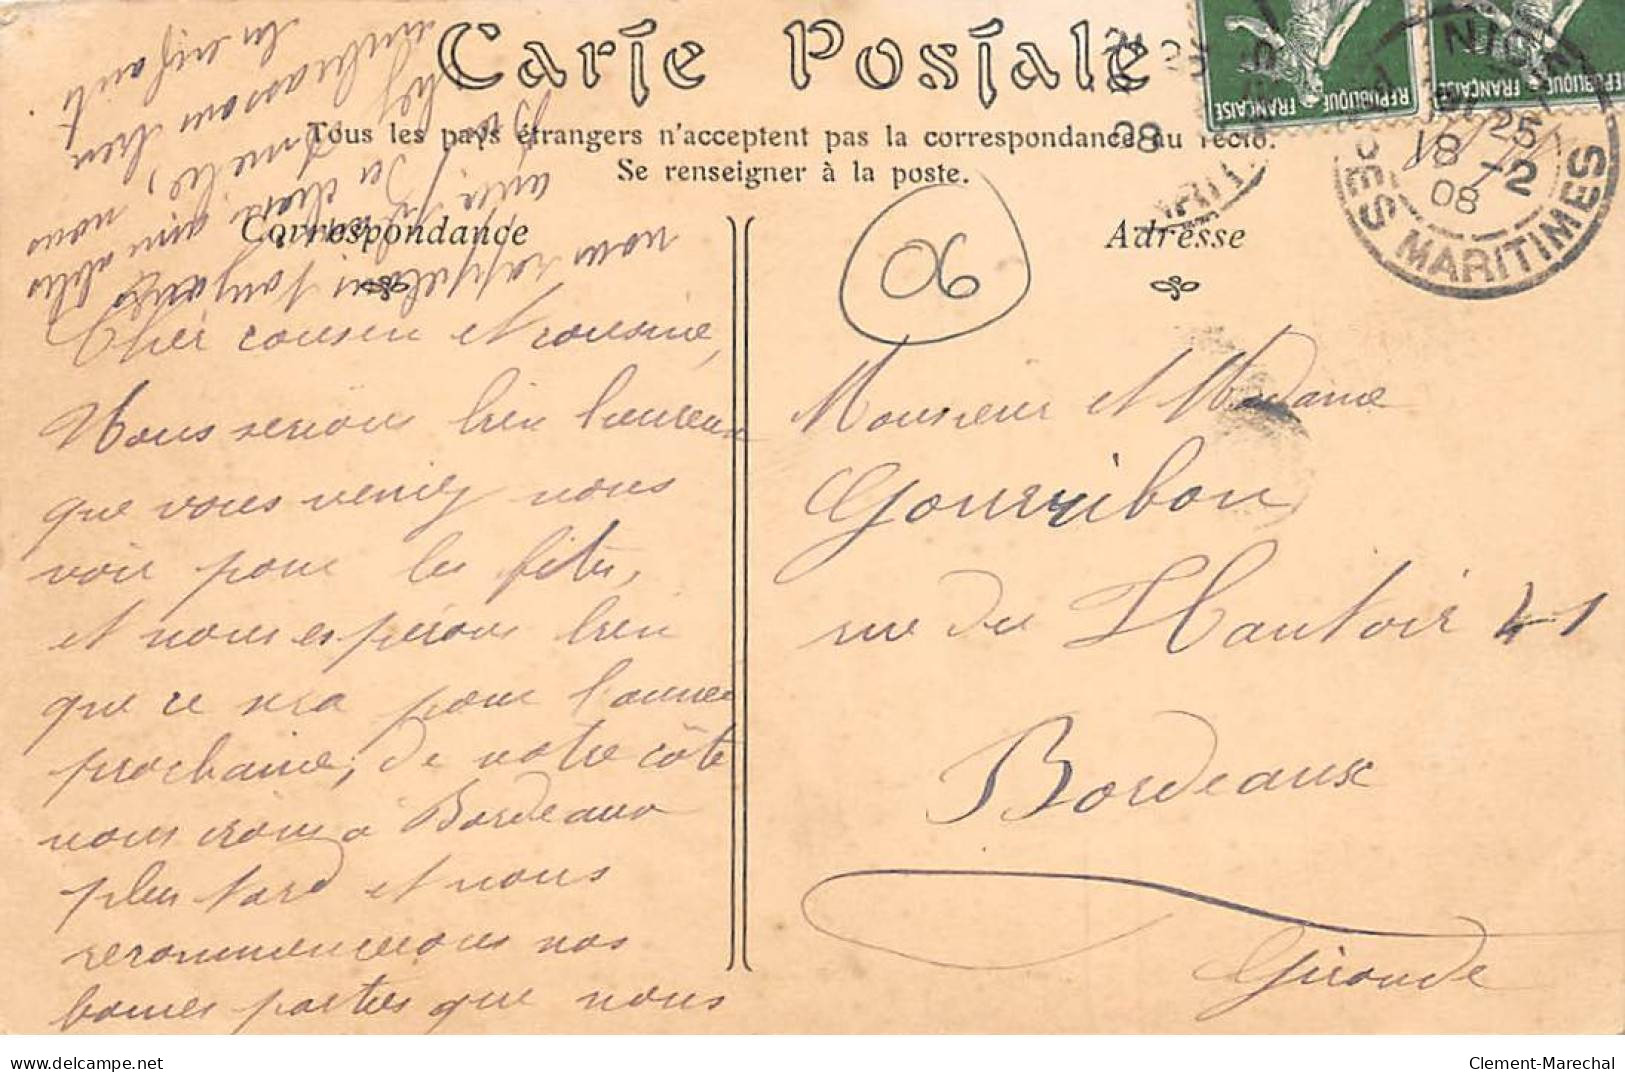 Carte Postale
Tous les pays étrangers n'acceptent pas la correspondance au recto.
Se renseigner à la poste.
Correspondance
Adresse
06
RÉPUBLIQUE FRANÇAISE
RÉPUBLIQUE FRANÇAISE
NICE
25
18 - 2
08
MARITIMES
08
Cher cousin et cousine,
Nous serions bien heureux
que vous veniez nous
voir pour les fêtes,
et nous espérons bien
que ce sera pour l'année
prochaine, de notre côté
nous irons à Bordeaux
plus tard et nous
recommencerons nos
bonnes parties que nous
nous rappelons toujours
avec
nous
embrassons bien
les enfants.
Monsieur et Madame
Gourribon
rue du Hautoir 41
Bordeaux
Gironde
delcampe.net
Clement-Marechal